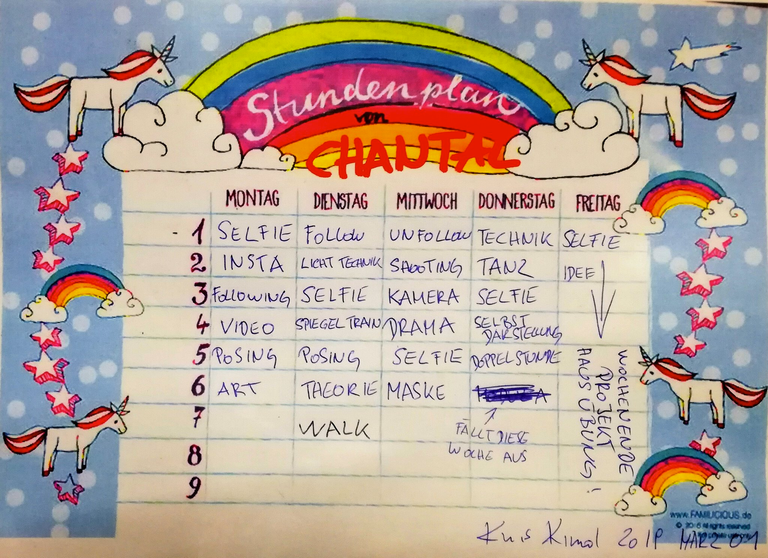 Stundenplan
von
CHANTAL
MONTAG DIENSTAG MITTWOCH DONNERSTAG FREITAG
1 SELFIE FOLLOW UNFOLLOW TECHNIK SELFIE
2 INSTA LICHT TECHNIK SHOOTING TANZ IDEE
3 FOLLOWING SELFIE KAMERA SELFIE
4 VIDEO SPIEGELTRAIN DRAMA SELBST DARSTELLUNG
5 POSING POSING SELFIE DOPPELSTUNDE
6 ART THEORIE MASKE
7 WALK
8
9
FÄLLT DIESE
WOCHE AUS
WOCHENENDE
PROJEKT
HAUSÜBUNG!
www.FAMILICIOUS.de
MÄRZ 01